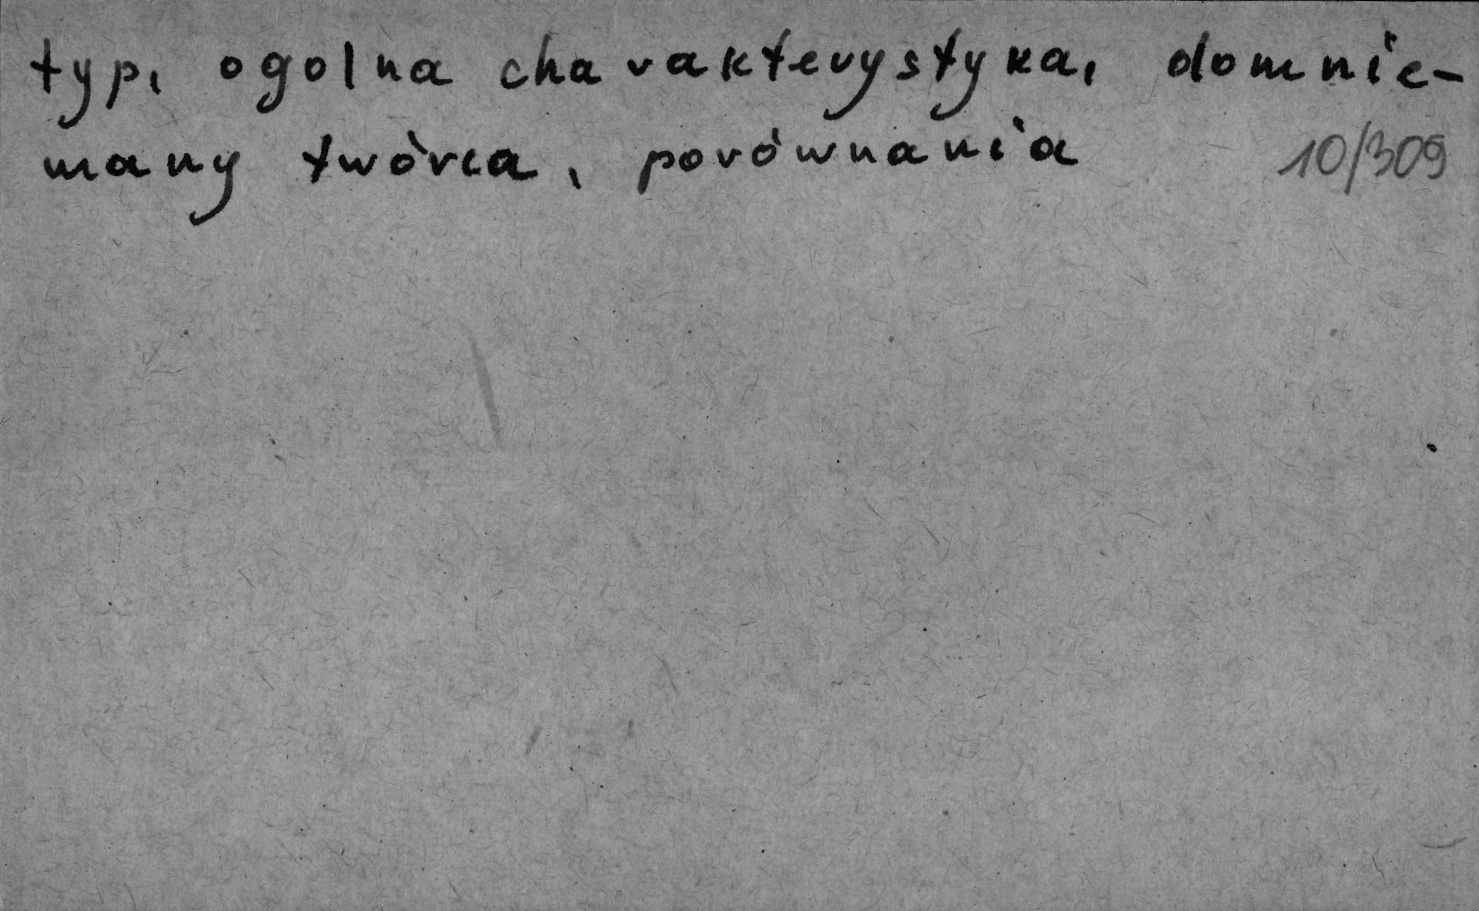 typ, ogolna charakterystyka, domnie-
many twórca, porównania 10/309